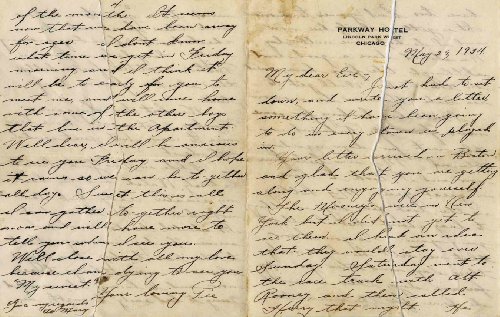 of the month. It seems
now that we have been away
for ages. I don't know
what time we get in Friday
morning and I think it
will be to early for you to
meet me, and will come home
with some of the other boys
that live in the Apartment.
Well dear, I will be anxious
to see you Friday and I hope
it rains so we can be together
all day. Guess this is all
I can gather together right
now and will have more to
tell you when I see you.
Will close with all my love
because I'm dying to see you
My sweet.
Your loving
Give my regards
to Mary
PARKWAY HOTEL
LINCOLN PARK WEST
CHICAGO
May 23, 1934
My dear
Just had to sit
down and write you a letter
something I have been going
to do in every town we played
in.
Your letter arrived in Boston
and glad that you are getting
along and enjoying yourself.
The Mooneys in New
York but had not yet to
see them. I had an idea
that they would stay over
Sunday. Saturday went to
the race track with
Rooney and then called
Harry that night. He